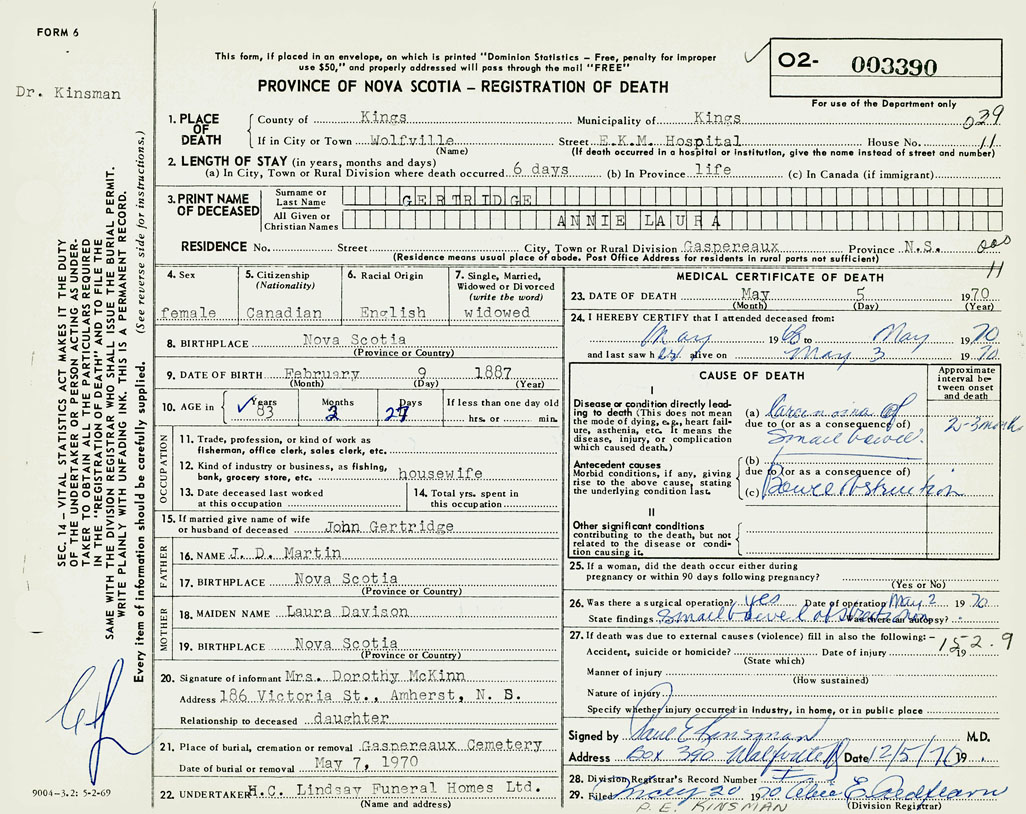 FORM 6
Dr. Kinsman
This form, if placed in an envelope, on which is printed "Dominion Statistics – Free, penalty for improper
use $50," and properly addressed will pass through the mail "FREE"
PROVINCE OF NOVA SCOTIA – REGISTRATION OF DEATH
O2- 003390
For use of the Department only
029
11
1. PLACE OF DEATH
County of Kings Municipality of Kings
If in City or Town Wolfville Street E.K.M. Hospital House No.
(Name) (If death occurred in a hospital or institution, give the name instead of street and number)
2. LENGTH OF STAY (in years, months and days)
(a) In City, Town or Rural Division where death occurred 6 days (b) In Province life (c) In Canada (if immigrant)
3. PRINT NAME OF DECEASED
Surname or Last Name GERTRIDGE
All Given or Christian Names ANNIE LAURA
RESIDENCE No. Street City, Town or Rural Division Gaspereaux Province N.S.
(Residence means usual place of abode. Post Office Address for residents in rural parts not sufficient)
000
11
4. Sex
female
5. Citizenship
(Nationality)
Canadian
6. Racial Origin
English
7. Single, Married,
Widowed or Divorced
(write the word)
widowed
8. BIRTHPLACE Nova Scotia
(Province or Country)
9. DATE OF BIRTH February 9 1887
(Month) (Day) (Year)
10. AGE in Years Months Days If less than one day old
83 2 27 hrs. or min.
OCCUPATION
11. Trade, profession, or kind of work as
fisherman, office clerk, sales clerk, etc.
12. Kind of industry or business, as fishing,
bank, grocery store, etc. housewife
13. Date deceased last worked
at this occupation
14. Total yrs. spent in
this occupation
15. If married give name of wife
or husband of deceased John Gertridge
FATHER
16. NAME J. D. Martin
17. BIRTHPLACE Nova Scotia
(Province or Country)
MOTHER
18. MAIDEN NAME Laura Davison
19. BIRTHPLACE Nova Scotia
(Province or Country)
20. Signature of informant Mrs. Dorothy McKinn
Address 186 Victoria St., Amherst, N. S.
Relationship to deceased daughter
21. Place of burial, cremation or removal Gaspereaux Cemetery
Date of burial or removal May 7, 1970
22. UNDERTAKER H.C. Lindsay Funeral Homes Ltd.
(Name and address)
MEDICAL CERTIFICATE OF DEATH
23. DATE OF DEATH May 5 1970
(Month) (Day) (Year)
24. I HEREBY CERTIFY that I attended deceased from:
May 1968 to May 1970
and last saw her alive on May 3 1970
CAUSE OF DEATH
Approximate
interval be-
tween onset
and death
I
Disease or condition directly lead-
ing to death (This does not mean
the mode of dying, e.g., heart fail-
ure, asthenia, etc. It means the
disease, injury, or complication
which caused death.)
(a) Carcinoma of
due to (or as a consequence of)
Small bowel.
2-3 months
Antecedent causes
Morbid conditions, if any, giving
rise to the above cause, stating
the underlying condition last.
(b)
due to (or as a consequence of)
(c) Bowel Obstruction
II
Other significant conditions
contributing to the death, but not
related to the disease or condi-
tion causing it.
25. If a woman, did the death occur either during
pregnancy or within 90 days following pregnancy?
(Yes or No)
26. Was there a surgical operation? yes Date of operation May 2 1970
State findings Small bowel obstruction Was there an autopsy?
27. If death was due to external causes (violence) fill in also the following: –
152.9
Accident, suicide or homicide? Date of injury 19
(State which)
Manner of injury
(How sustained)
Nature of injury
Specify whether injury occurred in industry, in home, or in public place
Signed by Paul E Kinsman M.D.
Address Box 390 Wolfville Date 12/5/70 19
28. Division Registrar's Record Number
29. Filed May 20 1970
(Division Registrar)
P. E. KINSMAN
SEC. 14 – VITAL STATISTICS ACT MAKES IT THE DUTY
OF THE UNDERTAKER OR PERSON ACTING AS UNDER-
TAKER TO OBTAIN ALL THE PARTICULARS REQUIRED
IN THE "REGISTRATION OF DEATH" AND TO FILE THE
SAME WITH THE DIVISION REGISTRAR WHO SHALL ISSUE THE BURIAL PERMIT.
WRITE PLAINLY WITH UNFADING INK. THIS IS A PERMANENT RECORD.
Every item of information should be carefully supplied. (See reverse side for instructions.)
9004-3.2: 5-2-69